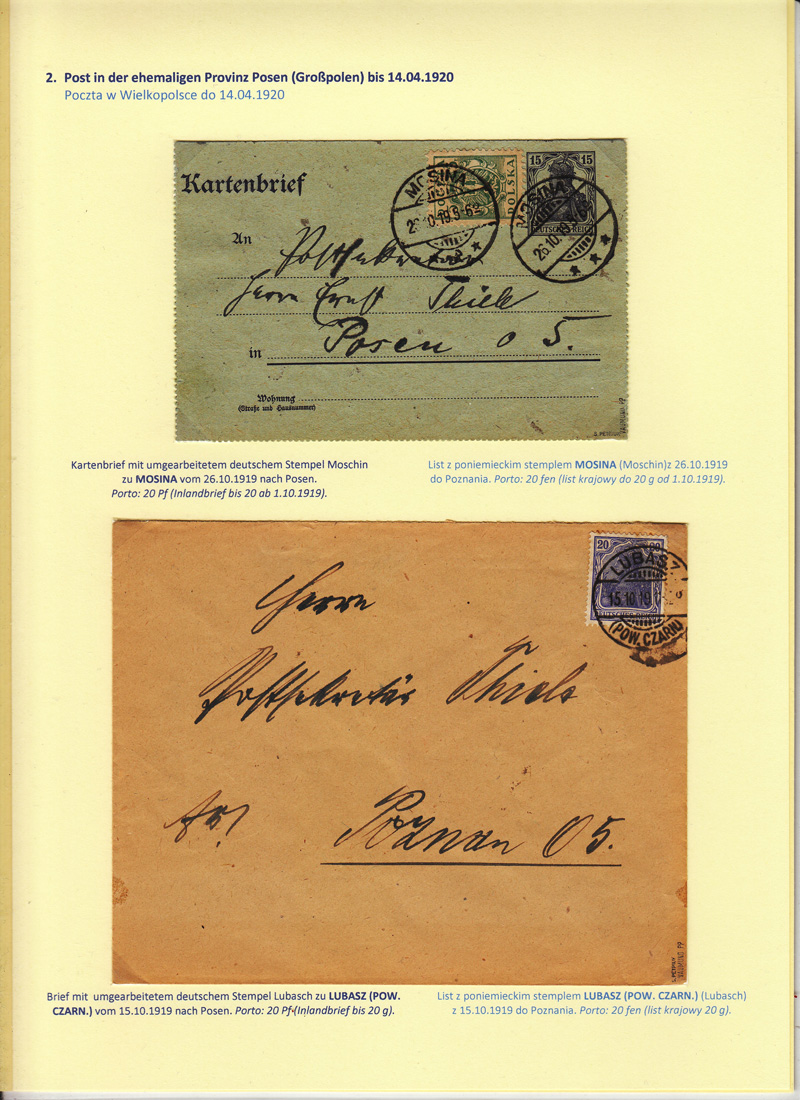 2. Post in der ehemaligen Provinz Posen (Großpolen) bis 14.04.1920
Poczta w Wielkopolsce do 14.04.1920
Kartenbrief
POLSKA
15 15
DEUTSCHES REICH
MOSINA
26.10.19.5-6
MOSINA
26.10.19
An
Herrn Ernst Thiele
in Posen O 5.
Wohnung
(Straße und Hausnummer)
Kartenbrief mit umgearbeitetem deutschem Stempel Moschin
zu MOSINA vom 26.10.1919 nach Posen.
Porto: 20 Pf (Inlandbrief bis 20 ab 1.10.1919).
List z poniemieckim stemplem MOSINA (Moschin)z 26.10.1919
do Poznania. Porto: 20 fen (list krajowy do 20 g od 1.10.1919).
20 20
DEUTSCHES REICH
LUBASZ
15.10.19
(POW. CZARN)
Herrn
Postsekretär Thiele
Poznan O 5.
Brief mit umgearbeitetem deutschem Stempel Lubasch zu LUBASZ (POW.
CZARN.) vom 15.10.1919 nach Posen. Porto: 20 Pf (Inlandbrief bis 20 g).
List z poniemieckim stemplem LUBASZ (POW. CZARN.) (Lubasch)
z 15.10.1919 do Poznania. Porto: 20 fen (list krajowy 20 g).